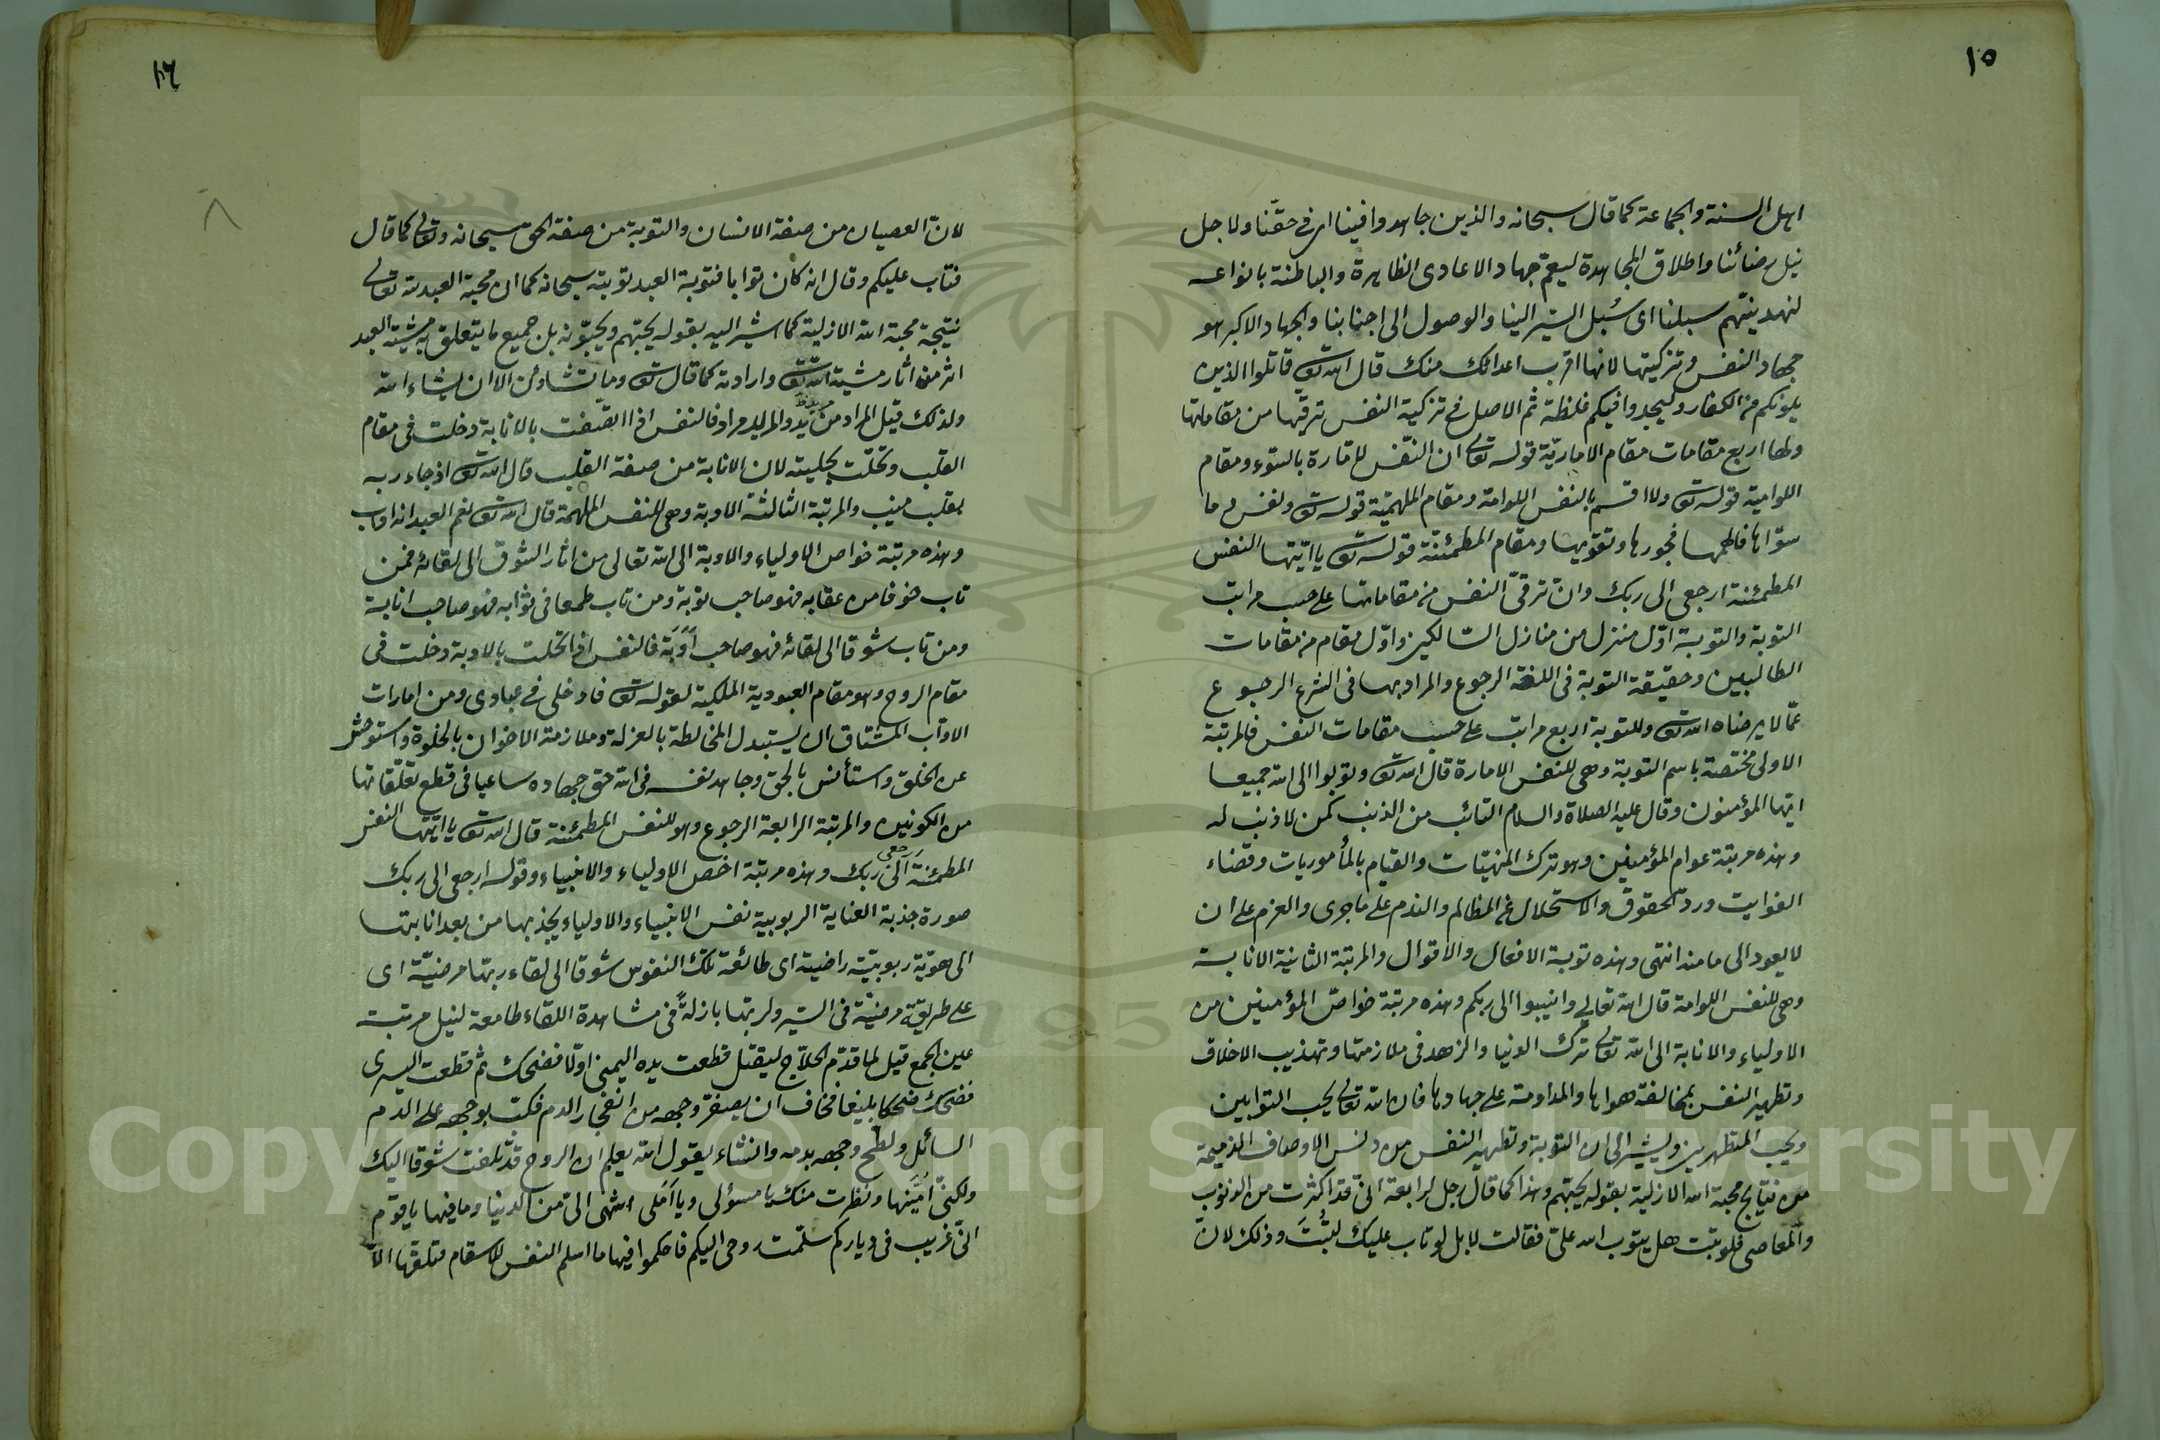 ١٥
اهل السنة والجماعة كما قال سبحانه والذين جاهدوا فينا اى فى حقنا ولاجل
نيل رضائنا واطلاق المجاهدة ليعم جهاد الاعادى الظاهرة والباطنة بانواعه
لنهدينّهم سبلنا اى سُبل السّير الينا والوصول الى اجنابنا والجهاد الاكبر هو
جهاد النفس وتزكيتها لانها اقرب اعدائك منك قال الله تع قاتلوا الذين
يلونكم من الكفار وليجدوا فيكم غلظة ثم الاصل فى تزكية النفس ترقيها من مقاماتها
ولها اربع مقامات مقام الامارية قوله تعالى ان النّفس لامّارة بالسّوء ومقام
اللوامية قوله تع ولا اقسم بالنفس اللوامة ومقام الملهميّة قوله تع ونفس وما
سوّاها فالهمها فجورها وتقويها ومقام المطمئنّة قوله تع يا ايّتها النفس
المطمئنة ارجعى الى ربك وان ترقىّ النفس من مقاماتها على حسب مراتب
التوبة والتوبة اوّل منزل من منازل السّالكين واوّل مقام من مقامات
الطالبين وحقيقة التوبة فى اللغة الرجوع والمراد بها فى الشرع الرجوع
عمّا لا يرضاه الله تع وللتوبة اربع مراتب على حسب مقامات النفس فالمرتبة
الاولى مختصة باسم التوبة وهى للنفس الامارة قال الله تع وتوبوا الى الله جميعا
ايّها المؤمنون وقال عليه الصلاة والسلام التائب من الذنب كمن لا ذنب له
وهذه مرتبة عوام المؤمنين وهو ترك المنهيّات والقيام بالمأموريات وقضاء
الفوايت وردّ الحقوق والاستحلال عن المظالم والندم على ماجرى والعزم على ان
لا يعود الى ما منه انتهى وهذه توبة الافعال والاقوال والمرتبة الثانية الانابة
وهى للنفس اللوامة قال الله تعالى وانيبوا الى ربكم وهذه مرتبة خواصّ المؤمنين من
الاولياء والانابة الى الله تعالى ترك الدنيا والزهد فى ملازمتها وتهذيب الاخلاق
وتطهير النفس بمخالفة هواها والمداومة على جهادها فان الله تعالى يحب التوابين
ويحب المتطهرين ويشير الى ان التوبة وتطهير النفس من دنس الاوصاف الذميمة
من نتايج محبة الله الازلية بقوله يحبّهم وهذا كما قال رجل لرابعة انىّ قد اكثرت من الذنوب
والمعاصى فلو تبت هل يتوب الله علىّ فقالت لا بل لو تاب عليك لتُبتَ وذلك لانّ
١٦
لانّ العصيان من صفة الانسان والتوبة من صفة الحق سبحانه وتعالى كما قال
فتاب عليكم وقال انه كان توابا فتوبة العبد توبته سبحانه كما ان محبة العبد لله تعالى
نتيجة محبة الله الازلية كما اشير اليه بقوله يحبّهم ويحبّونه بل جميع ما يتعلق به مشيّة العبد
اثر من اثار مشية الله تع وارادته كما قال تع وما تشاؤن الا ان يشاء الله
ولذلك قيل المراد مريد والمريد مراد فالنفس اذا اتصفت بالانابة دخلت فى مقام
القلب وتحلّت بحليته لان الانابة من صفة القلب قال الله تع اذ جاء ربه
بقلب منيب والمرتبة الثالثة الاوبة وهى للنفس الملهمة قال الله تع نعم العبد انه اواب
وهذه مرتبة خواص الاولياء والاوبة الى الله تعالى من اثار الشوق الى لقائه فمن
تاب خوفا من عقابه فهو صاحب توبة ومن تاب طمعا فى ثوابه فهو صاحب انابة
ومن تاب شوقا الى لقائه فهو صاحب اَوْبَة فالنفس اذا تحلت بالاوبة دخلت فى
مقام الروح وهو مقام العبودية الملكية لقوله تع فادخلى فى عبادى ومن امارات
الاوّاب المشتاق ان يستبدل المخالطة بالعزلة وملازمة الاخوان بالخلوة واستوحش
عن الخلق واستأنس بالحق وجاهد نفسه فى الله حق جهاده ساعيا فى قطع تعلّقاتها
من الكونين والمرتبة الرابعة الرجوع وهو للنفس المطمئنة قال الله تع يا ايّتها النفس
المطمئنة ارجعى الى ربك وهذه مرتبة اخص الاولياء والانبياء وقوله ارجعى الى ربك
صورة جذبة العناية الربوبية نفس الانبياء والاولياء يجذبها من بعد انابتها
الى هويّة ربوبيّته راضية اى طائعة تلك النفوس شوقا الى لقاء ربها مرضيّة اى
على طريقة مرضيّة فى السّير ولربها باذلةً فى مشاهدة اللقاء طامعة لنيل مرتبة
عين الجمع قيل لما قدّم الحلّاج ليقتل قطعت يده اليمنى اولا فضحك ثم قطعت اليسرى
فضحك ضحكا بليغا فخاف ان يصفرّ وجهه من انفجار الدم فكبّ بوجهه على الدم
السائل ولطّخ وجهه بدمه وانشاء يقول الله يعلم ان الروح قد تلفت شوقا اليك
ولكنىّ امنّيها ونظرت منك يا سؤلى ويا اَمَلى اشهى الىّ من الدنيا وما فيها يا قوم
انىّ غريب فى دياركم سلّمت روحى اليكم فاحكموا فيها ما اسلم النفس للاسقام تتلفها الاّ